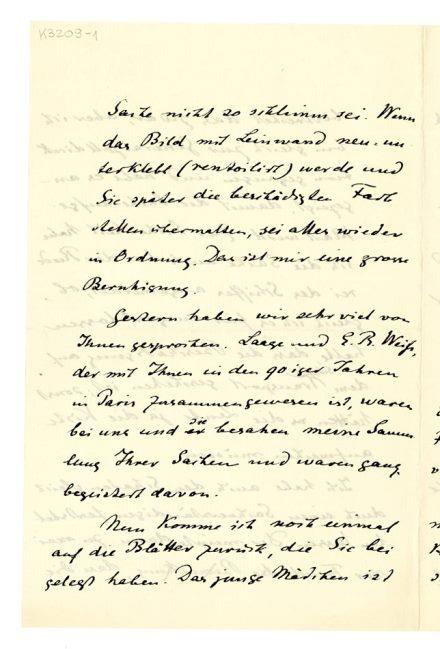 K3203-1
Sache nicht so schlimm sei. Wenn
das Bild mit Leinwand neu un-
terklebt (rentoilirt) werde und
Sie später die beschädigten Farb
stellen übermalten, sei alles wieder
in Ordnung. Das ist mir eine grosse
Beruhigung.
Gestern haben wir sehr viel von
Ihnen gesprochen. Laage und E. R. Weiß,
der mit Ihnen in den 90iger Jahren
in Paris zusammengewesen ist, waren
bei uns und
die
besahen meine Samm
lung Ihrer Sachen und waren ganz
begeistert davon.
Nun komme ich noch einmal
auf die Blätter zurück, die Sie bei
gelegt haben. Das junge Mädchen ist